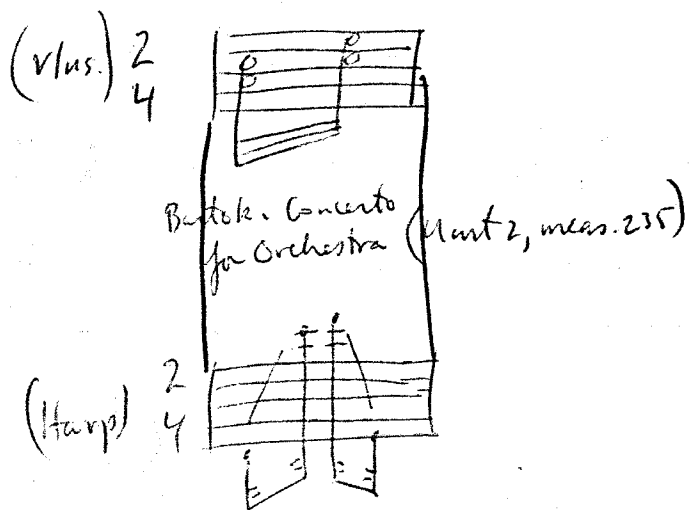 (vlns.) 2
4
Bartok. Concerto
for Orchestra (Mvmt 2, meas. 235)
2
(Harp) 4